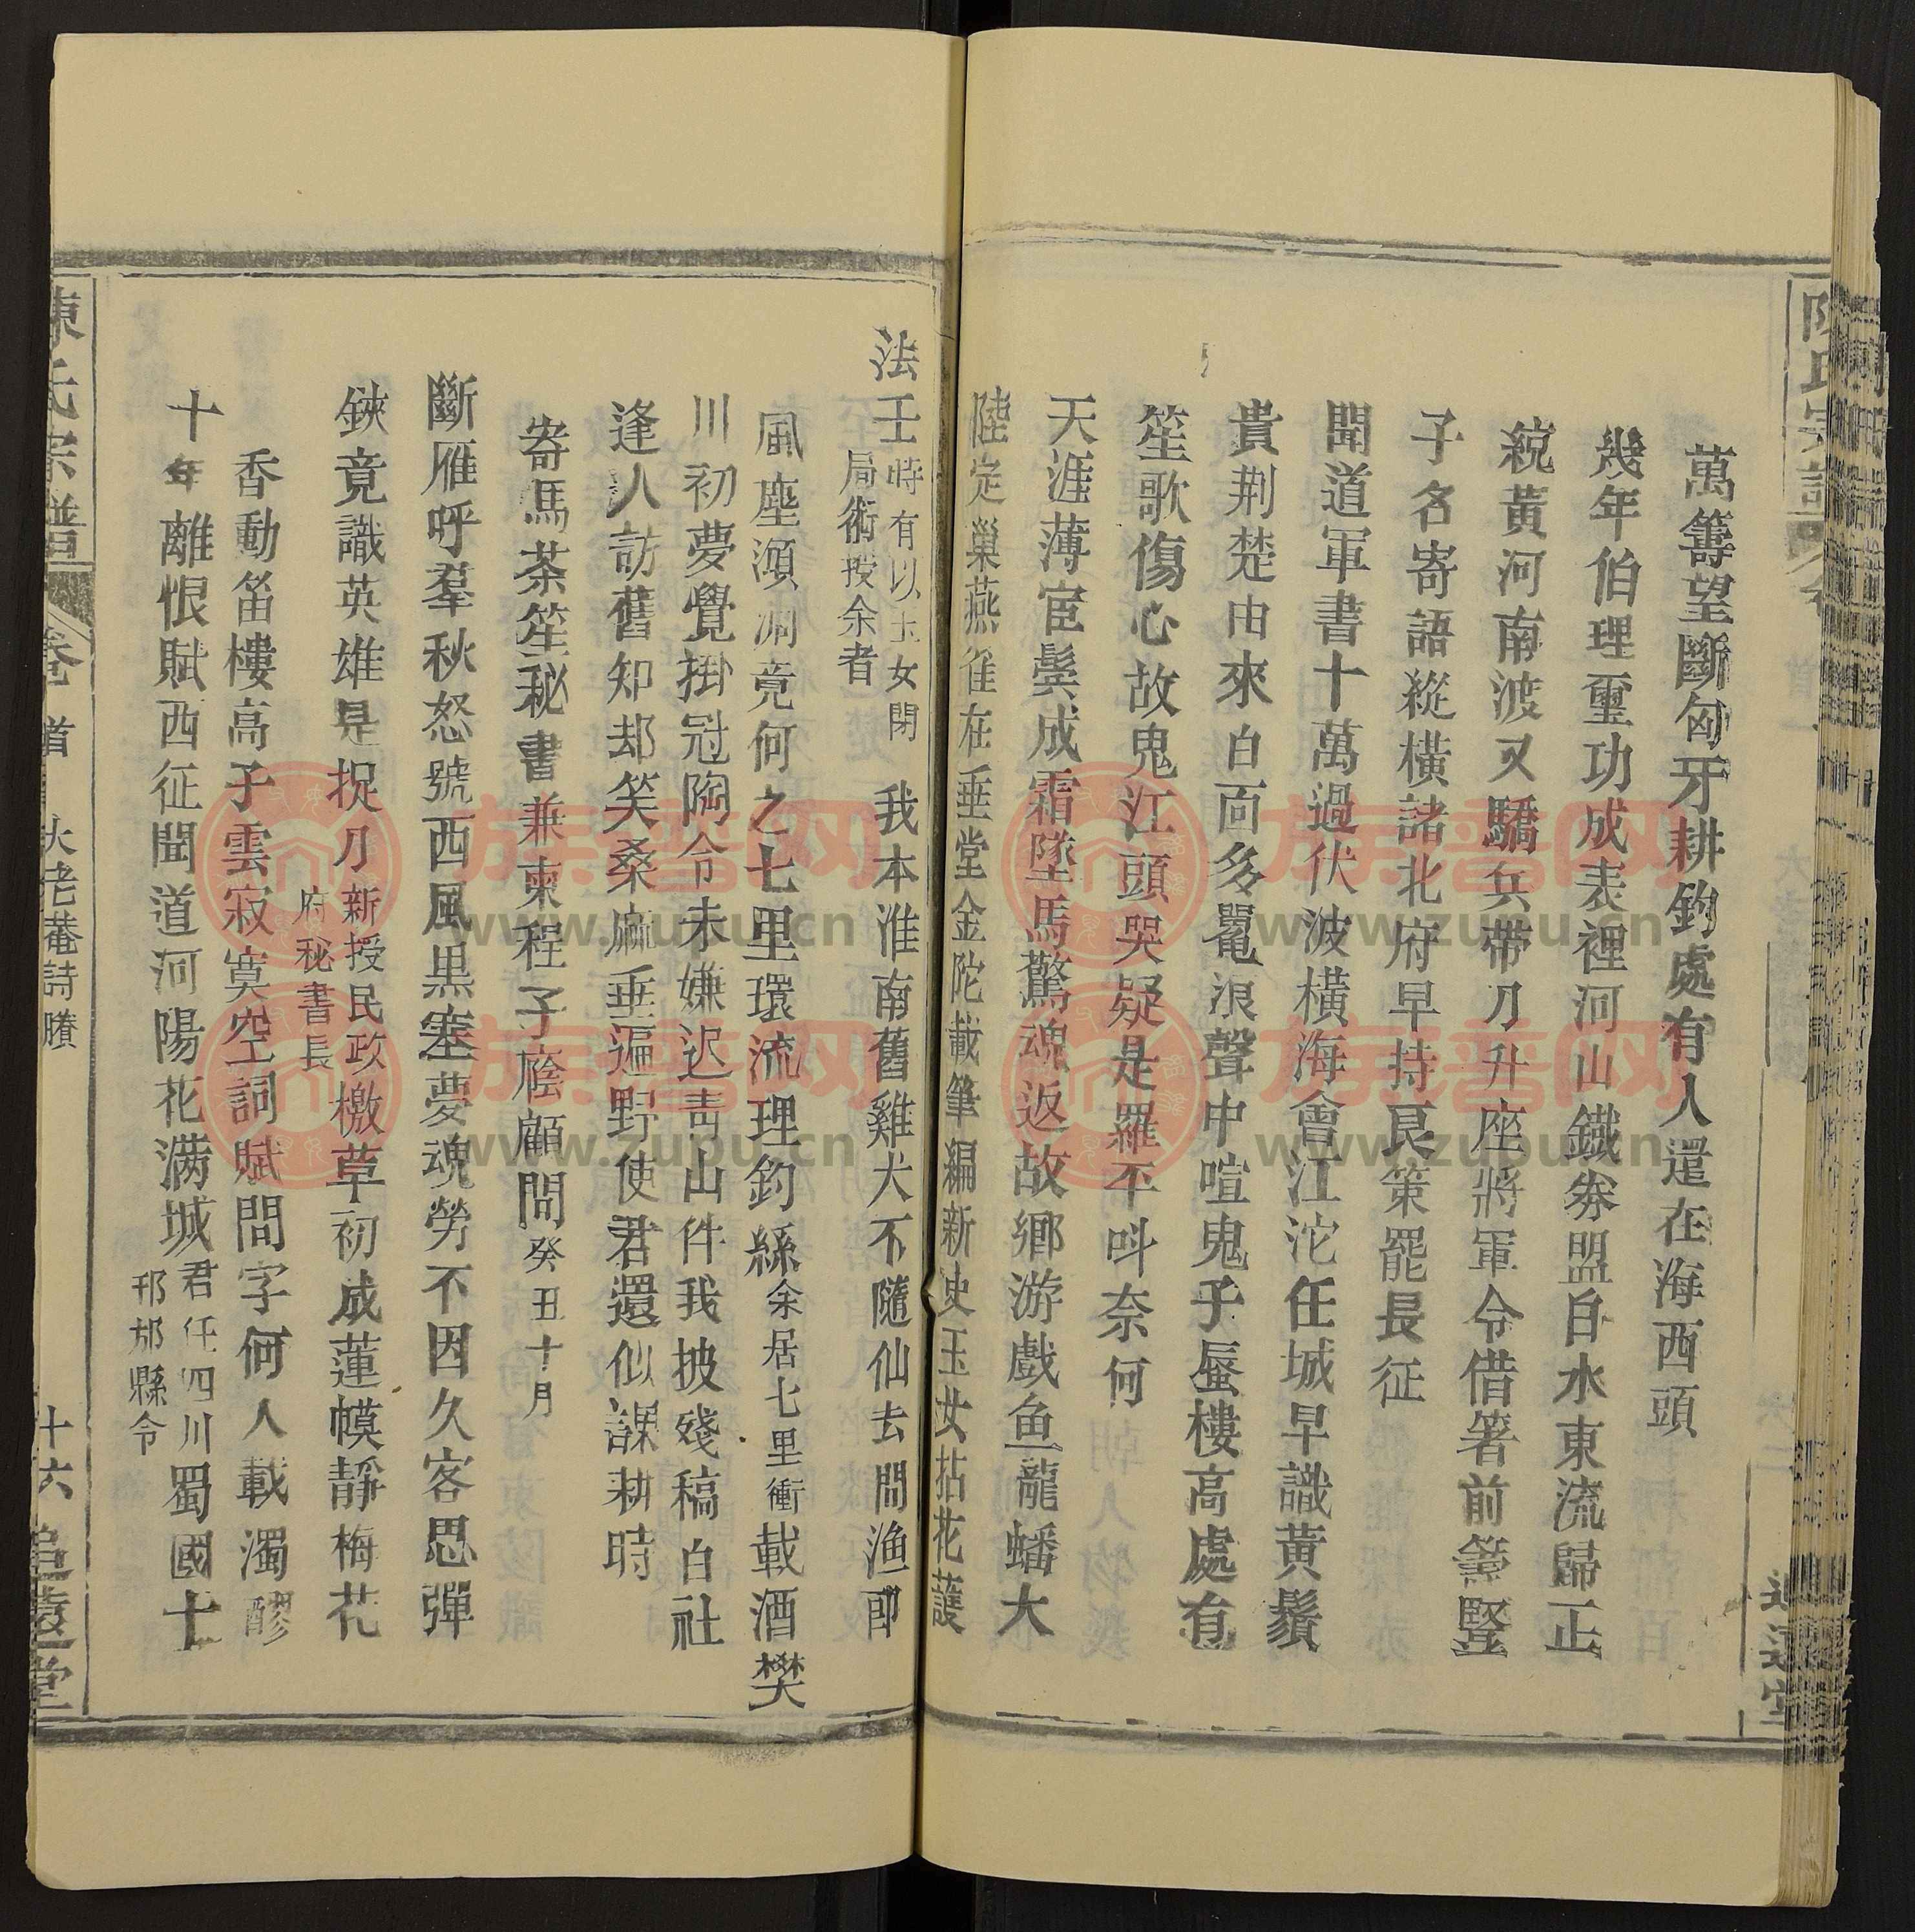 萬籌望斷匈牙耕釣處有人還在海西頭
幾年伯理璽功成表裡河山鐵劵盟自水東流歸正
統黃河南渡又驕兵帶刀升座將軍令借箸前籌豎
子名寄語縱橫諸北府早持良策罷長征
聞道軍書十萬過伏波橫海會江沱任城早識黃鬚
貴荆楚由來白面多鼍浪聲中喧鬼子蜃樓高處有
笙歌傷心故鬼江頭哭疑是羅平叫奈何
天涯薄宦鬓成霜墜馬驚魂返故鄉游戲魚龍蟠大
陸定巢燕雀在垂堂金陀載筆編新史玉女拈花護
法壬時有以玉女閉
局術授余者
我本淮南舊雞犬不隨仙去問漁郎
風塵澒洞竟何之七里環流理釣絲余居七里衝載酒樊
川初夢覺掛冠陶令未嫌迟靑山伴我披殘稿白社
逢人訪舊知却笑桑麻垂遍野使君還似課耕時
寄馬茶笙秘書兼柬程子廕顧問癸丑十月
斷雁呼羣秋怒號西風黒塞夢魂勞不因久客思彈
鋏竟識英雄是捉刀新授民政
府秘書長
檄草初成蓮幙靜梅花
香動笛樓高子雲寂寞空詞賦問字何人載濁醪
十年離恨賦西征聞道河陽花滿城君任四川
邛郲縣令
蜀國十
陳氏宗譜
卷首
大老菴詩賸
十六
追遠堂